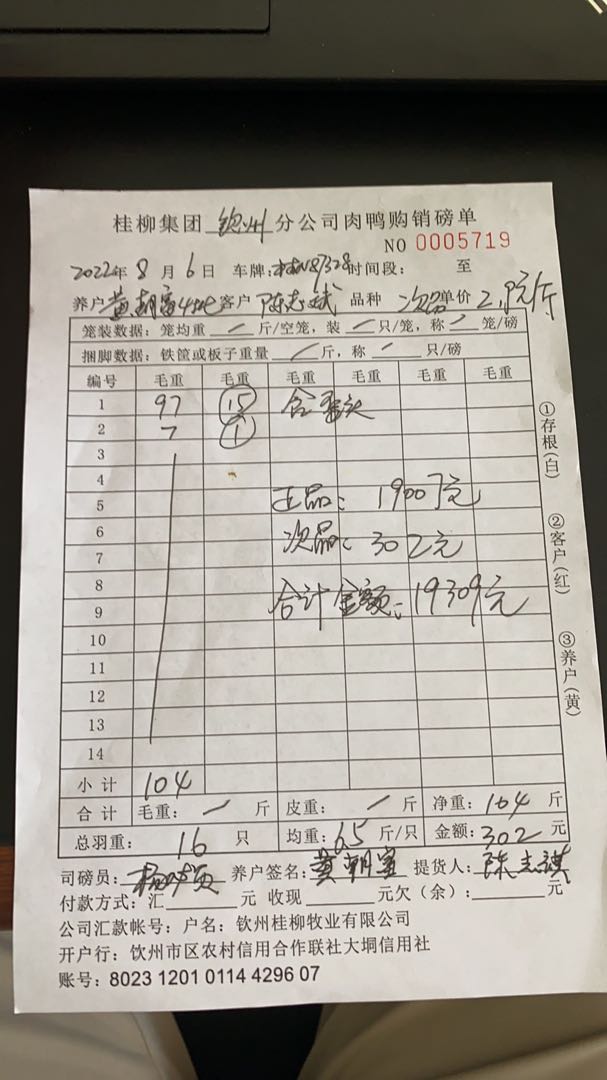 桂柳集团 钦州 分公司肉鸭购销磅单
NO 0005719
2022年 8 月 6 日 车牌: 桂N87328 时间段: 至
养户 黄朝富 客户 陈志斌 品种 次品 单价 2.9元/斤
笼装数据: 笼均重 / 斤/空笼, 装 / 只/笼, 称 / 笼/磅
捆脚数据: 铁筐或板子重量 / 斤, 称 / 只/磅
编号 毛重 毛重 毛重 毛重 毛重 毛重
1 97 15
2 7 1
3
4
5 正品: 19007元
6
7 次品: 302元
8
9 合计金额: 19309元
10
11
12
13
14
小计 104
合计 毛重: / 斤 皮重: / 斤 净重: 104 斤
总羽重: 16 只 均重: 6.5 斤/只 金额: 302 元
司磅员: 养户签名: 黄朝富 提货人: 陈志
付款方式: 汇 元 收现 元欠(余): 元
公司汇款帐号: 户名: 钦州桂柳牧业有限公司
开户行: 饮州市区农村信用合作联社大垌信用社
账号: 8023 1201 0114 4296 07
①存根(白)
②客户(红)
③养户(黄)